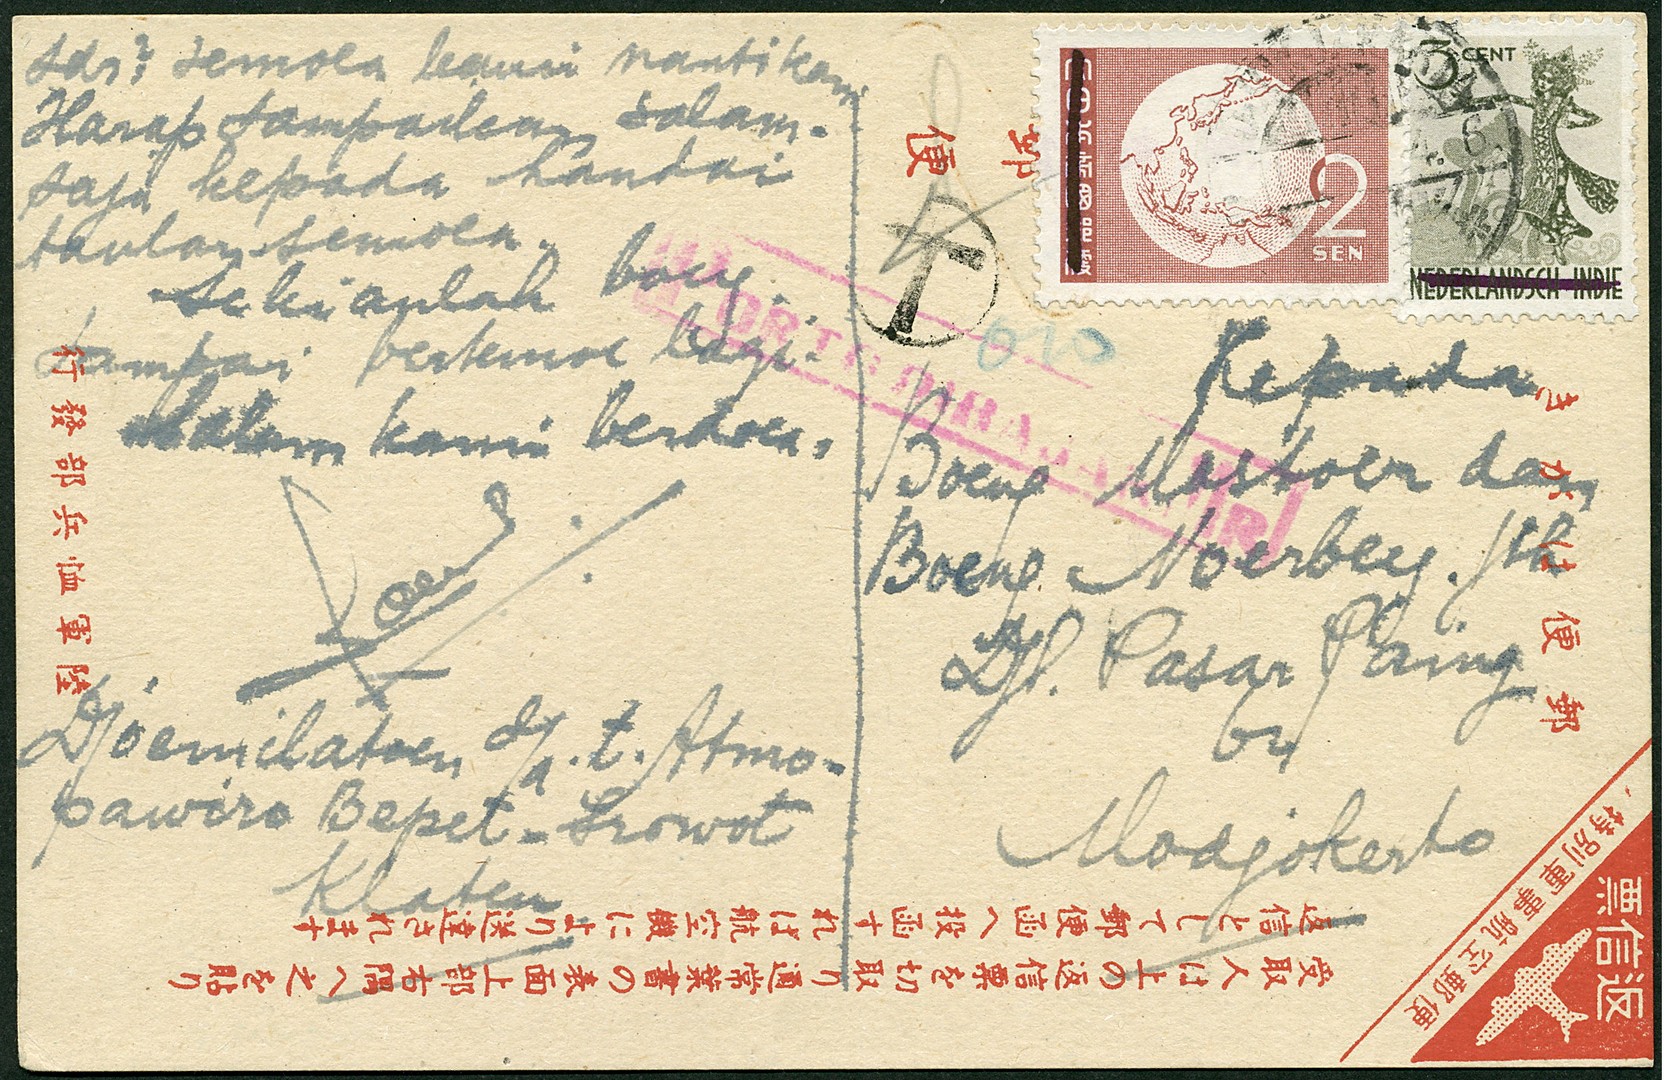 sdr? semoea kami nantikan
Harap sampaikan salam-
saja kepada handai
taulan semoea.
Sekianlah boeng.
sampai bertemoe lagi.
Salam kami berdoea,
Djoemilatoen d/a. t. Atmo-
pawiro Bepet - Srowot
Klaten
陸軍恤兵部發行
郵便
2
SEN
3 CENT
NEDERLANDSCH-INDIE
6.
T
PORTO DIBAJAR
020
Kepada
Boeng Mastoer dan
Boeng Noerbeg. jth
Djl. Pasar Paing
Modjokerto
郵便はがき
特別軍事航空郵便
返信票
受取人は上の返信票を切取り通常葉書の表面上部右隅へ之を貼り
返信として郵便函へ投函すれば航空機により送達されます